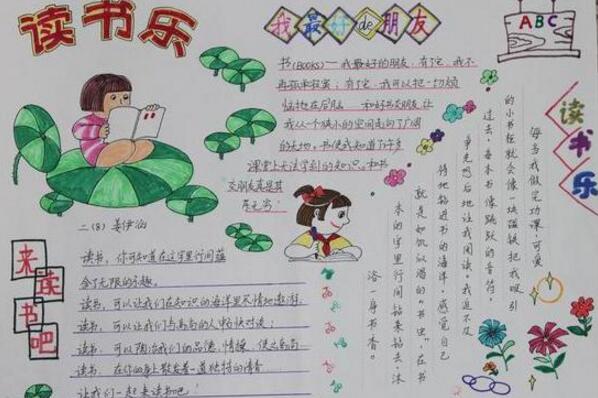 读书乐
我最好de朋友
ABC
书(BOOKS)—我最好的朋友,有了它,我不
再孤单寂寞;有了它,我可以把一切烦
恼抛在后脑 和好书交朋友,让
我从一个狭小的空间走向了广阔
的天地。书使我知道了许多
课堂上无法学到的知识。和书
交朋友真是其
乐无穷!
二(8) 姜伊涵
来读书吧
读书,你可知道在这字里行间蕴
含了无限的乐趣。
读书,可以让我们在知识的海洋里尽情地遨游。
读书,可以让我们与高尚的人畅快对谈;
读书,可以陶冶我们的品德,情操,使之高尚
读书,在你的身上散发着一道独特的清香
让我们一起来读书吧!
读书乐
每当我做完功课,可爱
的小书柜就会像一块磁铁把我吸引
过去,每本书像跳跃的音符,
争先恐后地让我阅读。我迫不及
待地钻进书的海洋,感觉自己
就是如饥似渴的“书虫”,在书
本的字里行间钻来钻去,沐
浴一身书香。